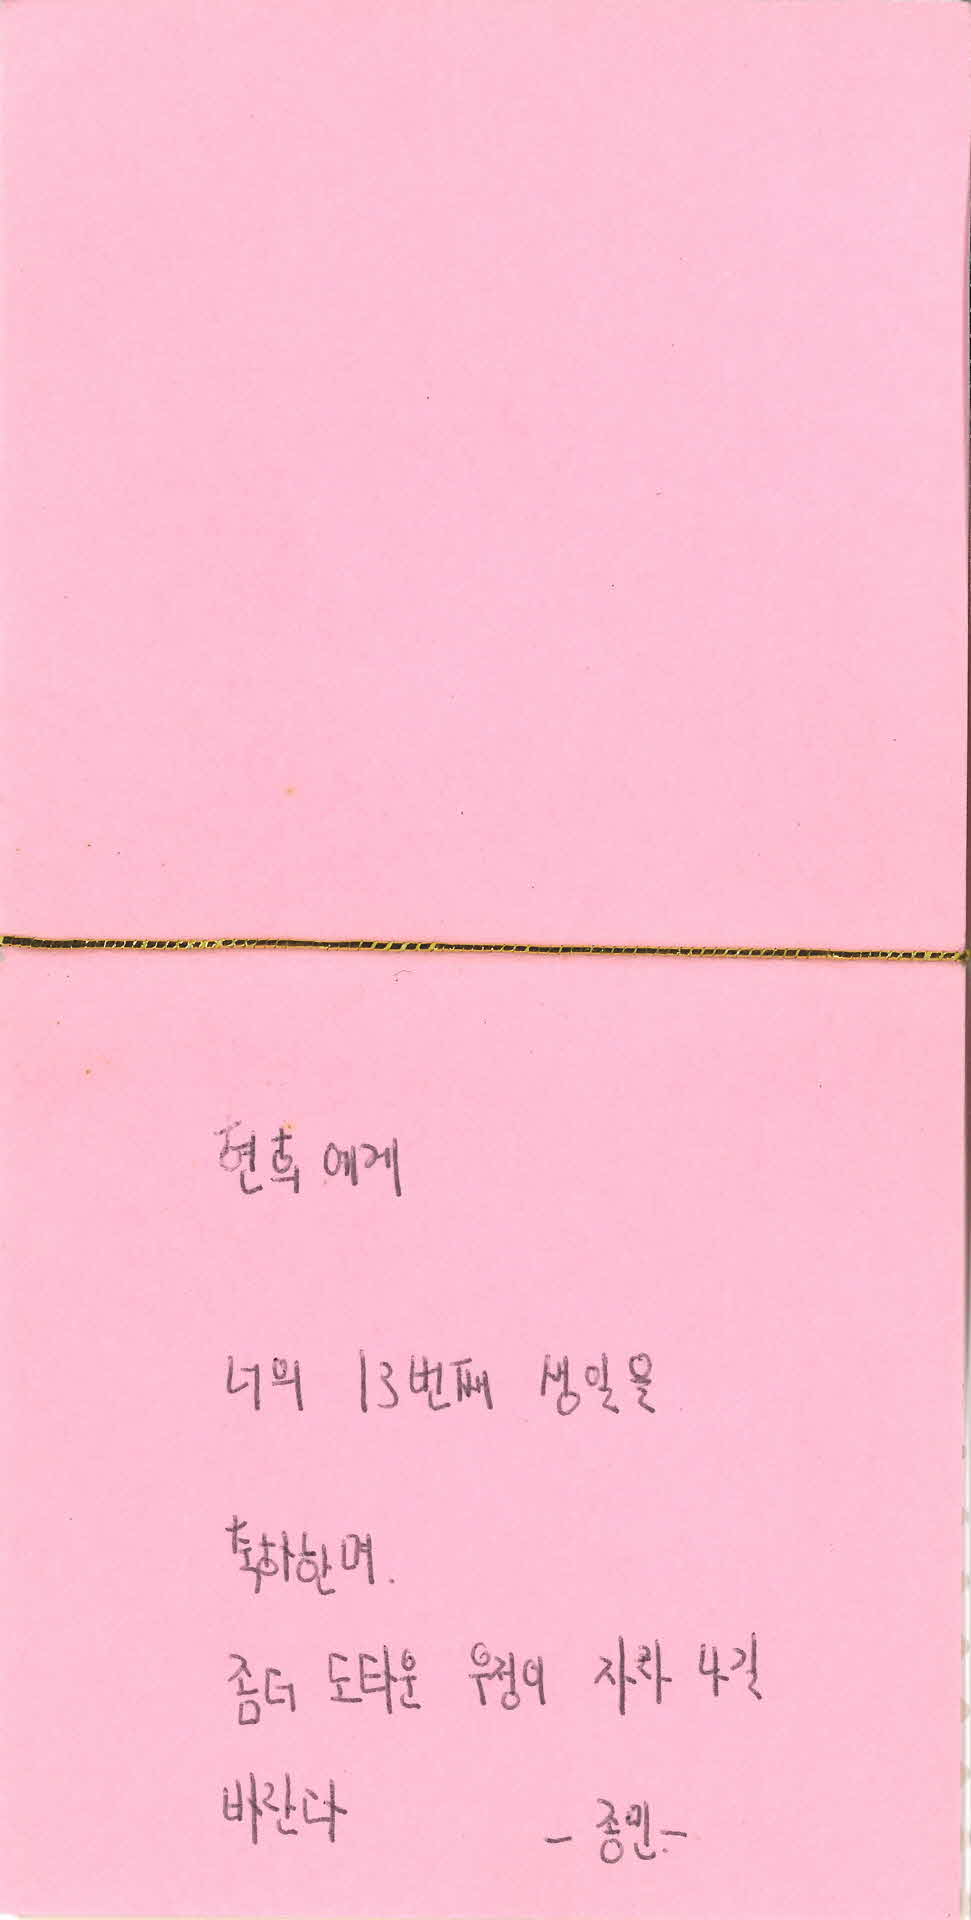 현희에게
너의 13번째 생일을
축하한며.
좀더 도타운 우정이 자라 나길
바란다 - 종민.-